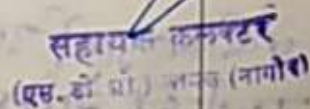 सहायक कलक्टर
(एस. डी. ओ.) (नागौर)